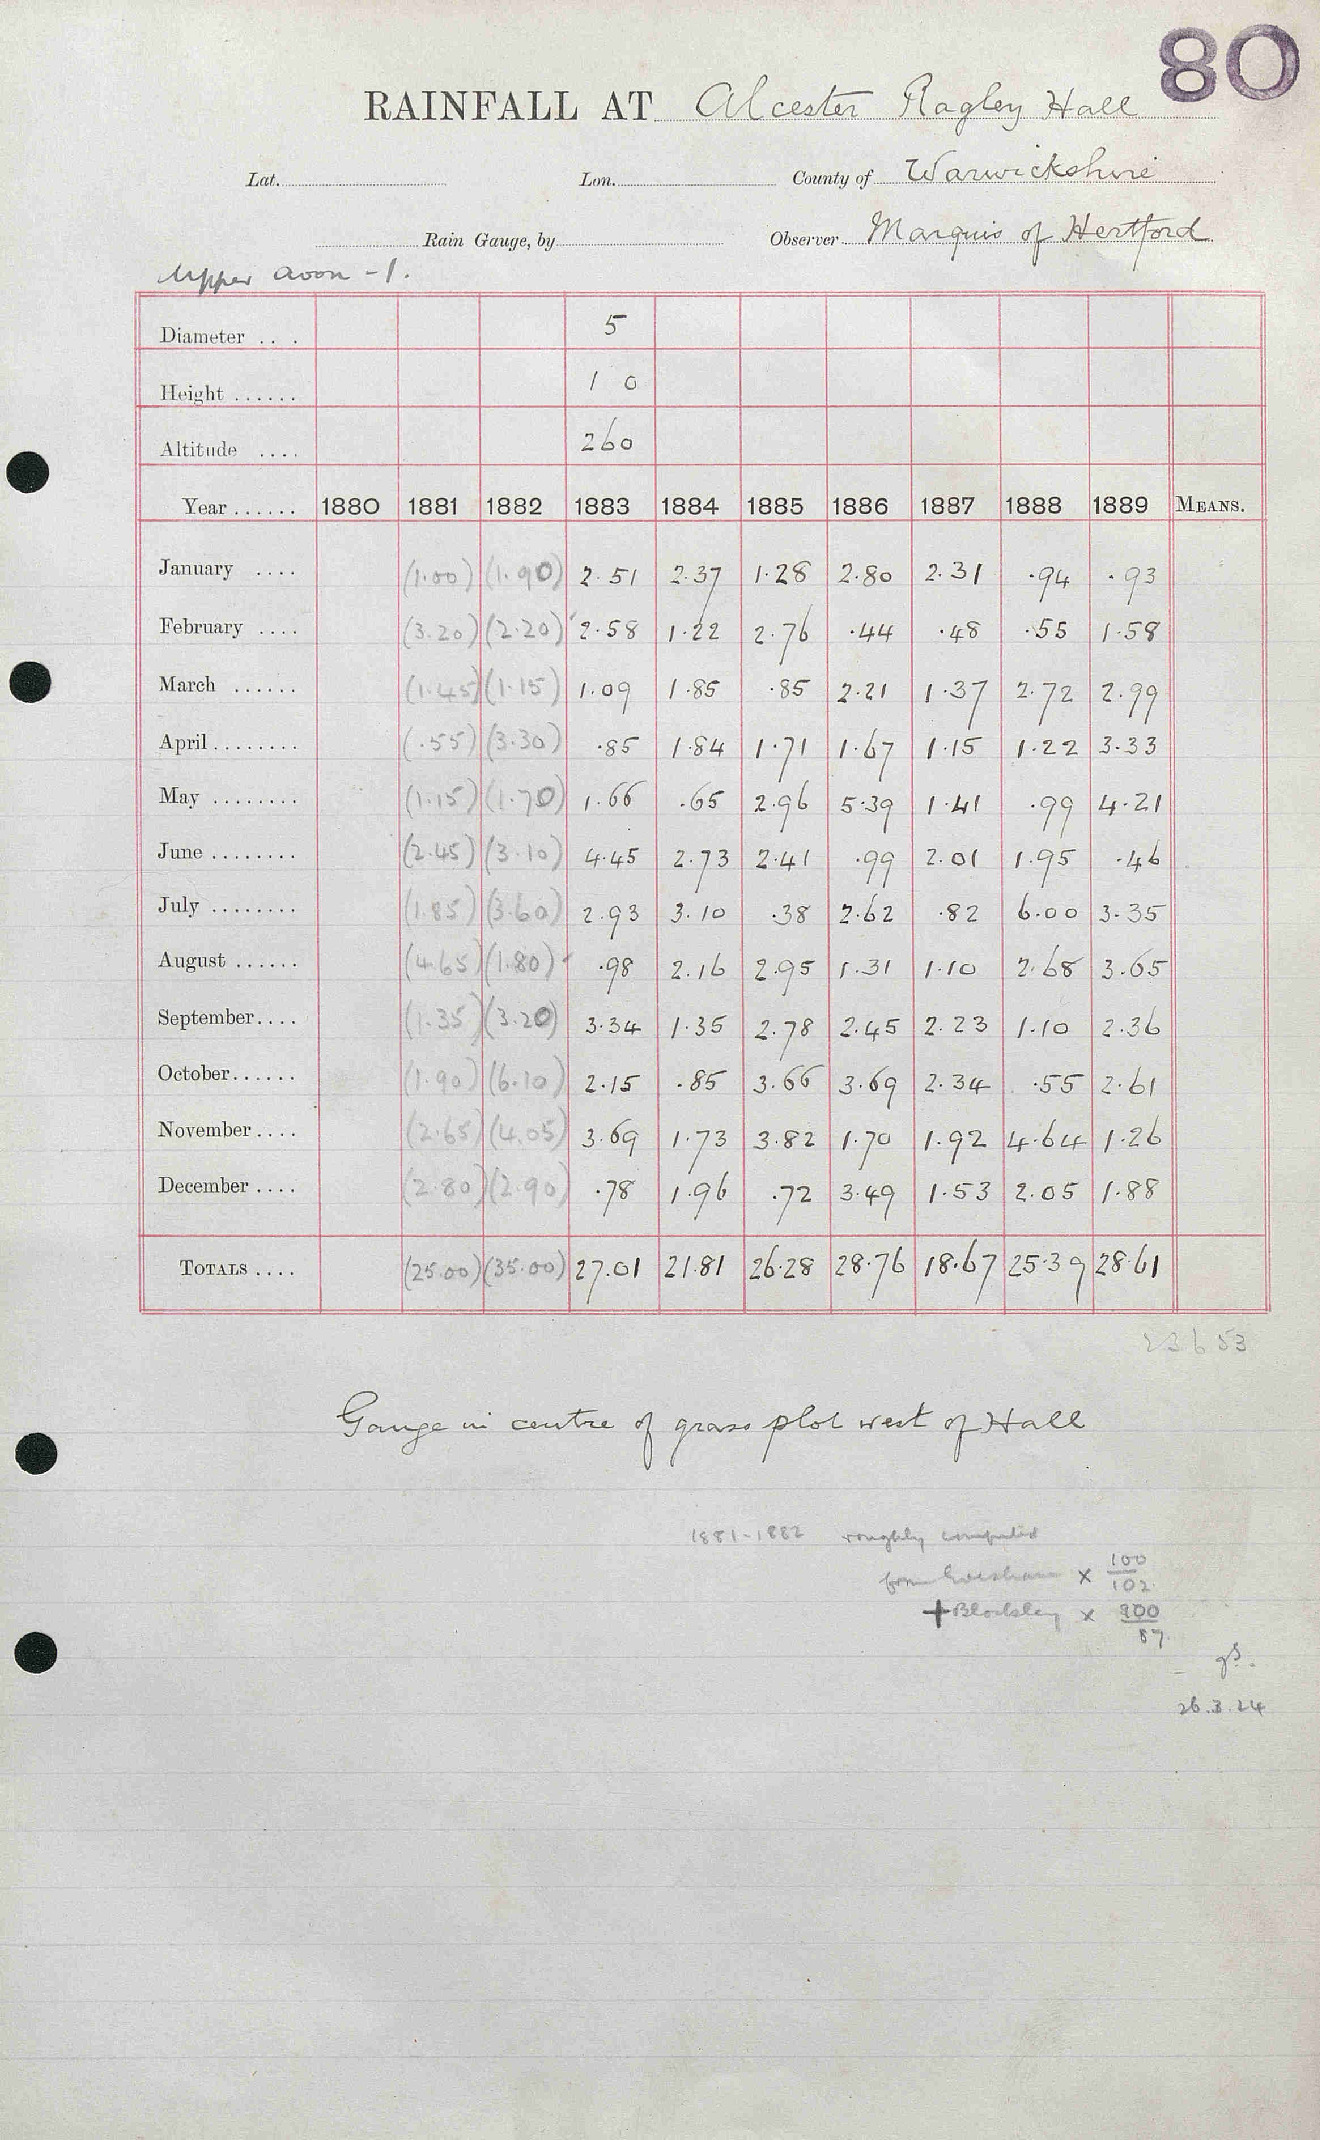 80
RAINFALL AT Alcester Ragley Hall
Lat. Lon. County of Warwickshire
Rain Gauge, by Observer Marquis of Hertford
Upper Avon - 1.
Diameter .. . 5
Height ...... 1 0
Altitude .... 260
Year ...... 1880 1881 1882 1883 1884 1885 1886 1887 1888 1889 MEANS.
January .... (1.00) (1.90) 2.51 2.37 1.28 2.80 2.31 .94 .93
February .... (3.20) (2.20) 2.58 1.22 2.76 .44 .48 .55 1.58
March ...... (1.45) (1.15) 1.09 1.85 .85 2.21 1.37 2.72 2.99
April ........ (.55) (3.30) .85 1.84 1.71 1.67 1.15 1.22 3.33
May ........ (1.15) (1.70) 1.66 .65 2.96 5.39 1.41 .99 4.21
June ........ (2.45) (3.10) 4.45 2.73 2.41 .99 2.01 1.95 .46
July ........ (1.85) (3.60) 2.93 3.10 .38 2.62 .82 6.00 3.35
August ...... (4.65) (1.80) .98 2.16 2.95 1.31 1.10 2.68 3.65
September.... (1.35) (3.20) 3.34 1.35 2.78 2.45 2.23 1.10 2.36
October...... (1.90) (6.10) 2.15 .85 3.66 3.69 2.34 .55 2.61
November.... (2.65) (4.05) 3.69 1.73 3.82 1.70 1.92 4.64 1.26
December .... (2.80) (2.90) .78 1.96 .72 3.49 1.53 2.05 1.88
TOTALS .... (25.00) (35.00) 27.01 21.81 26.28 28.76 18.67 25.39 28.61
23653
Gauge in centre of grass plot west of Hall
1881-1882 roughly computed
from Evesham × 100
102
+ Blockley × 100
87
26.3.24